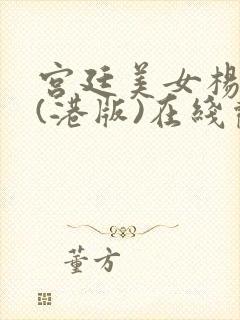 宫廷美女杨
(港版)在线
董方